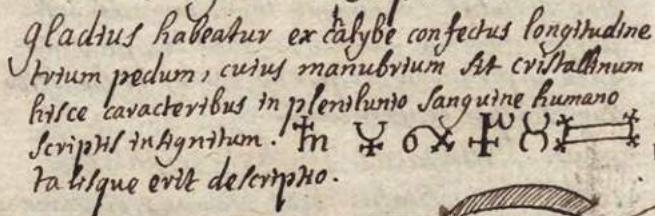 gladius habeatur ex chalybe confectus longitudine
trium pedum, cuius manubrium sit cristallinum
hisce caracteribus in plenilunio sanguine humano
scriptis insignitum.
talisque erit descriptio.